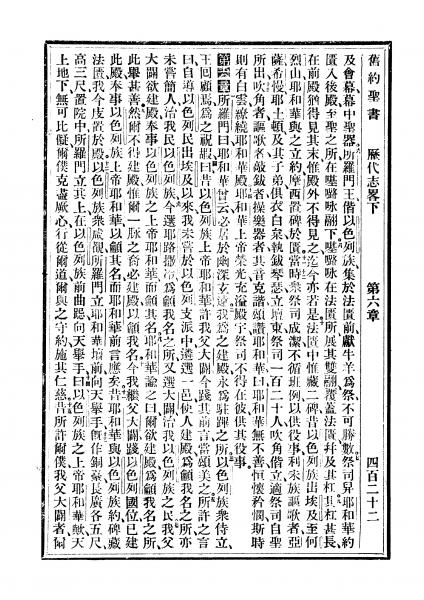 舊約聖書 歷代志畧下 第六章 四百二十二
及會幕幕中聖器所羅門王偕以色列族集於法匱前獻牛羊爲祭不可勝數祭司舁耶和華約
匱入後殿至聖之所在咏翮下咏在法匱所展其翮翼覆蓋法匱幷及其杠其杠甚長
在前殿猶得見其末惟殿外不得見之迄今亦若是法匱中惟藏二碑昔以色列族出埃及至何
烈山耶和華與之立約摩西置碑於匱當時衆祭司成潔不循班例以供役事利未族謳歌者亞
薩希幔耶土頓及其子弟俱衣白枲執鈸琴瑟立壇東祭司一百二十人吹角偕立適祭司自聖
所出吹角者謳歌者敲鈸者操樂器者其音克諧頌讚耶和華曰耶和華無不善恒懷矜憫斯時
則有白雲繚繞耶和華殿耶和華上帝榮光充溢殿宇祭司不得在彼供其役事
第六章所羅門曰耶和華曾云必居於幽深玄遠我爲之建殿永爲駐蹕之所以色列族衆侍立
王回顧焉爲之祝嘏曰昔以色列族上帝耶和華許我父大闢今踐其前言當頌美之所許之言
曰自導以色列民出埃及以來我未嘗於以色列支派中遴選一邑使人建殿爲籲我名之所亦
未嘗簡人治我民以色列族今選耶路撒冷爲籲我名之所又選大闢治我以色列之民我父
大闢欲建殿奉事以色列族之上帝耶和華而籲其名耶和華諭之曰爾欲建殿爲籲我名之所
此舉甚善然爾不得建殿惟爾一脈之裔必建殿以籲我名今我繼父大闢踐以色列國位已建
此殿奉事以色列族上帝耶和華以籲其名而耶和華前言應矣昔耶和華與以色列族約碑藏
法匱我今庋置於殿以色列族衆咸覩所羅門立耶和華壇前向天舉手旣作銅臺長廣各五尺
高三尺置於院所羅門立其上在以色列族衆前曲跽向天舉手曰以色列族之上帝耶和華歟天
上地下無可比儗爾僕克盡厥心行從爾道爾與之守約施其仁慈昔所許爾僕我父大闢者爾